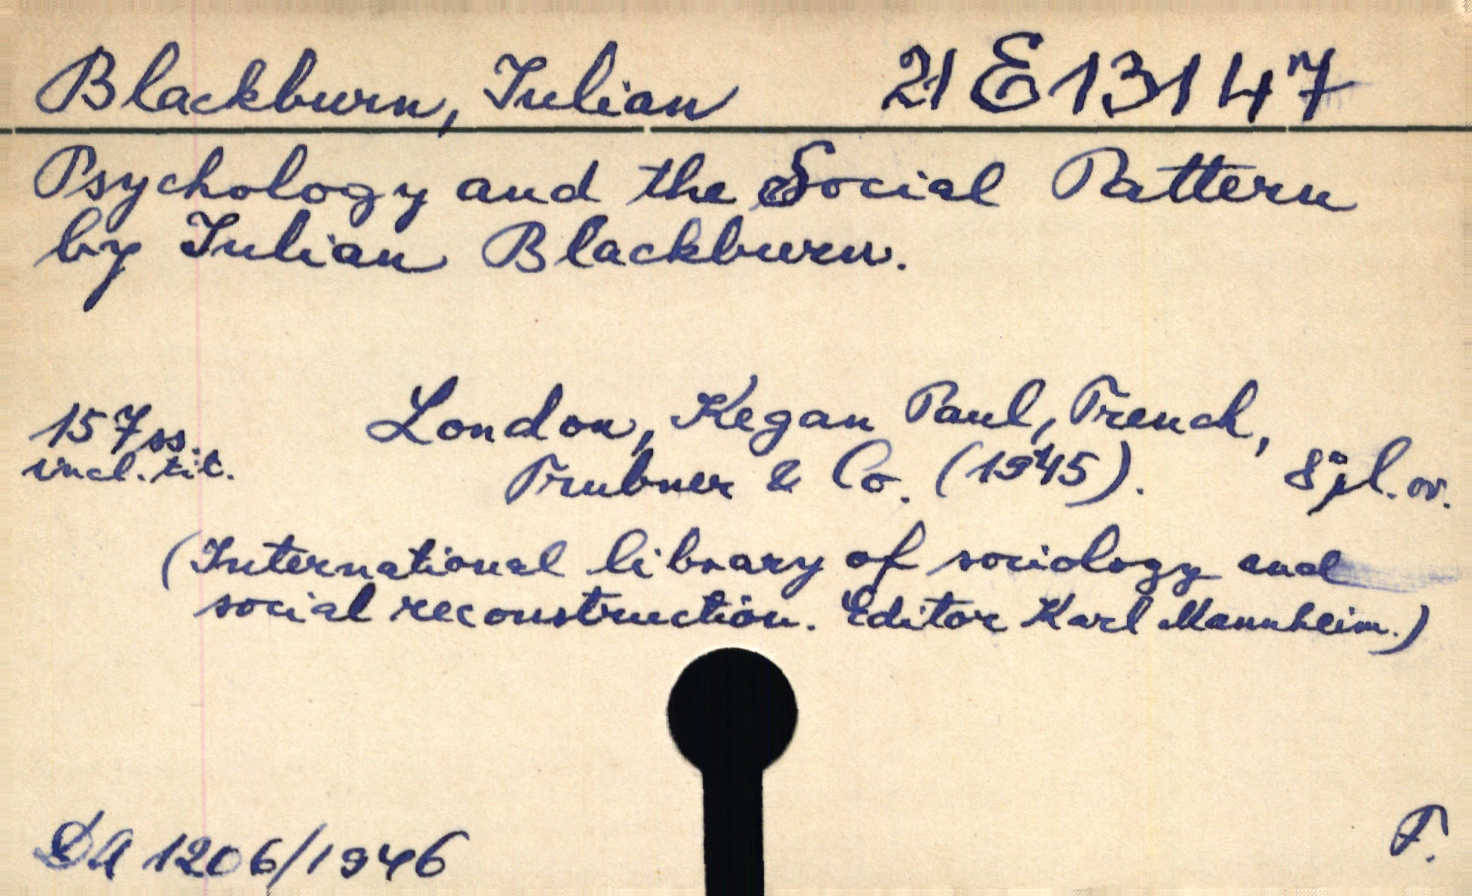 Blackburn, Julian 21 E 13147
Psychology and the Social Pattern
by Julian Blackburn.
157 ss. London, Kegan Paul, Trench,
incl. tit. Trubner & Co. (1945). 8° pl. ov.
(International library of sociology and
social reconstruction. Editor Karl Mannheim.)
DA 1206/1946 F.